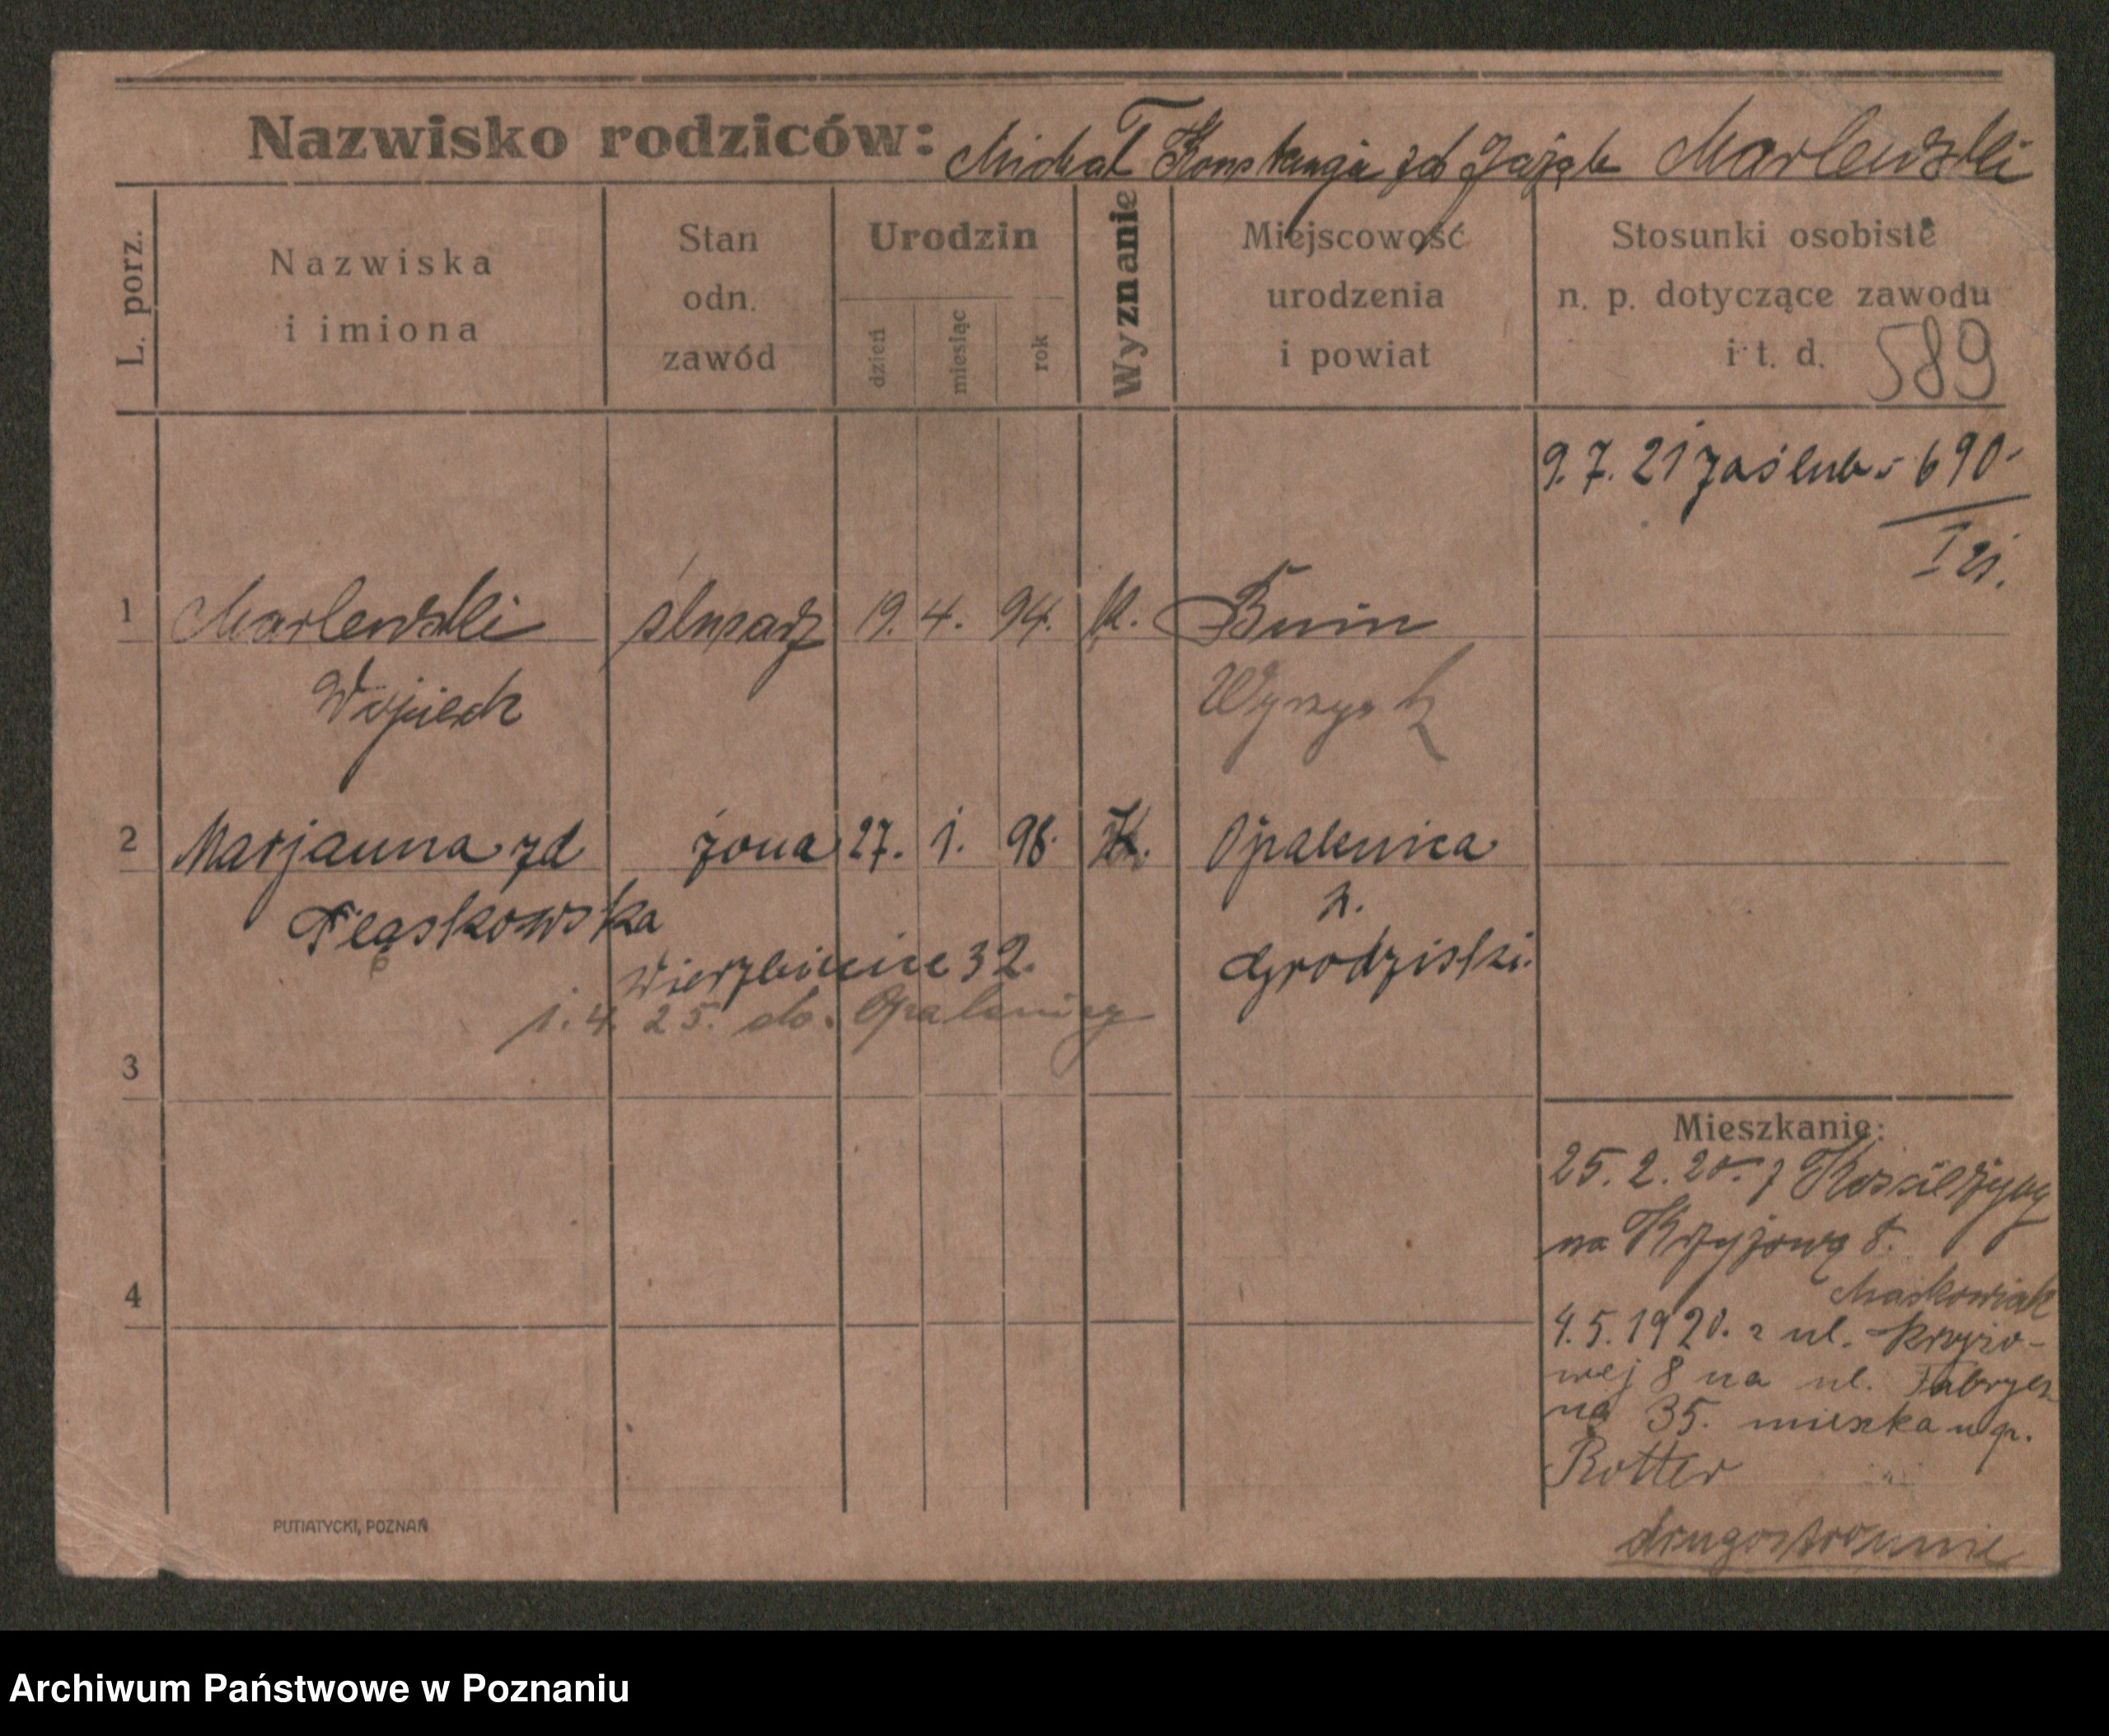 Nazwisko rodziców: Michał Konstancja zd Zając Marlewski
L. porz.
Nazwiska i imiona
Stan odn. zawód
Urodzin
dzień
miesiąc
rok
Wyznanie
Miejscowość urodzenia i powiat
Stosunki osobiste
n. p. dotyczące zawodu
i t. d.
589
9.7.21 zaślub. 690
I 21.
1 Marlewski ślusarz 19. 4. 94. k.
Wojciech Wyrzysk
2 Marjanna zd żona 27. 1. 98. K. Opalenica
p.
Grodziski.
Wierzbięcice 32.
1.4.25. do Opalenicy
3
Mieszkanie:
25.2.20. z Kościerzyny
na Krzyżową 8.
Maćkowiak
4.5.1920. z ul. Krzyżo-
wej 8 na ul. Fabrycz
ną 35. mieszka u p.
Rotter
4
drugostronnie
PUTIATYCKI, POZNAŃ
Archiwum Państwowe w Poznaniu